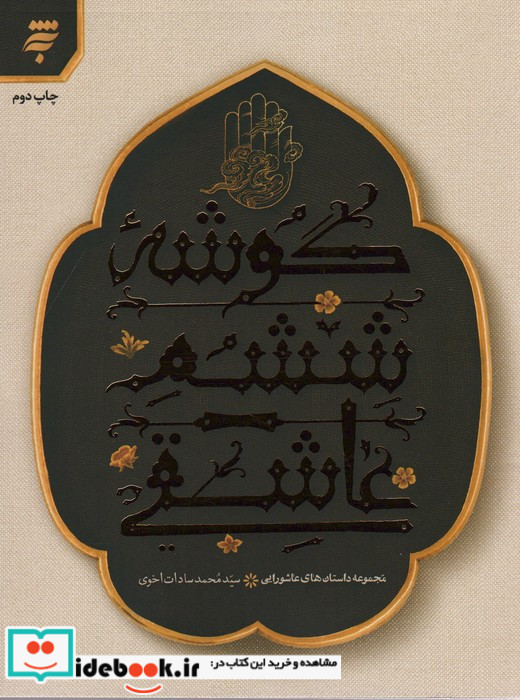 چاپ دوم
گوشهٔ
ششم
عاشقی
مجموعه داستان‌های عاشورایی ❋ سیّد مُحمد سادات اَخوی
idebook.ir
مشاهده و خرید این کتاب در: